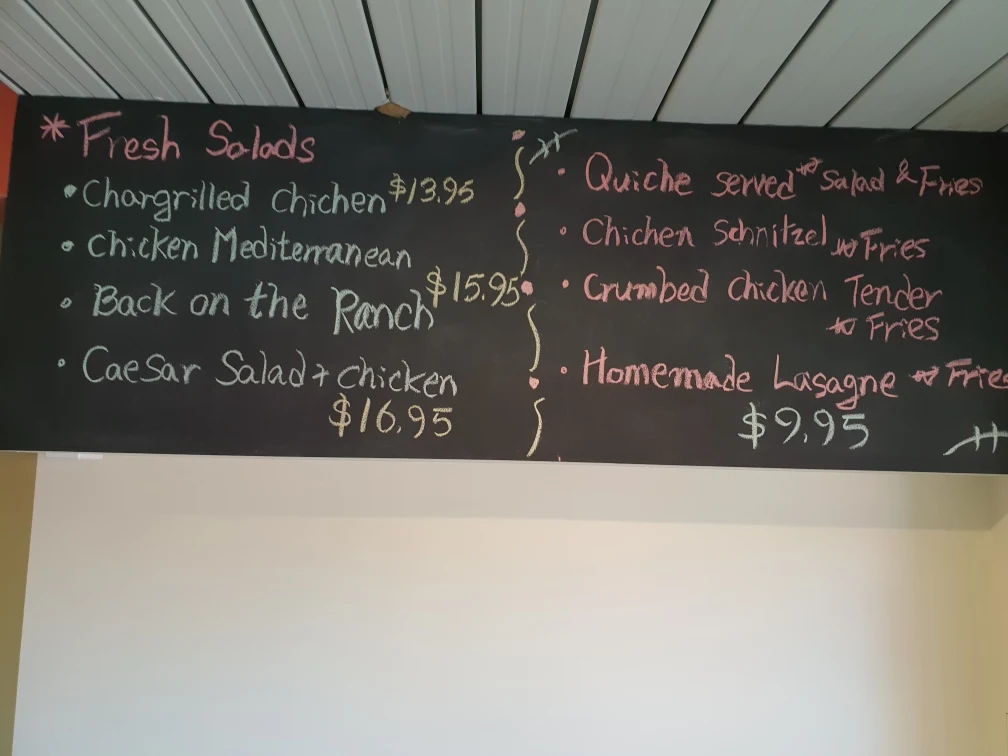 * Fresh Salads
• Chargrilled Chichen $13.95
• Chicken Mediterranean
$15.95
• Back on the Ranch
• Caesar Salad + chicken
$16.95
• Quiche served w Salad & Fries
• Chichen Schnitzel w Fries
• Crumbed chicken Tender
w Fries
• Homemade Lasagne w Fries
$9.95